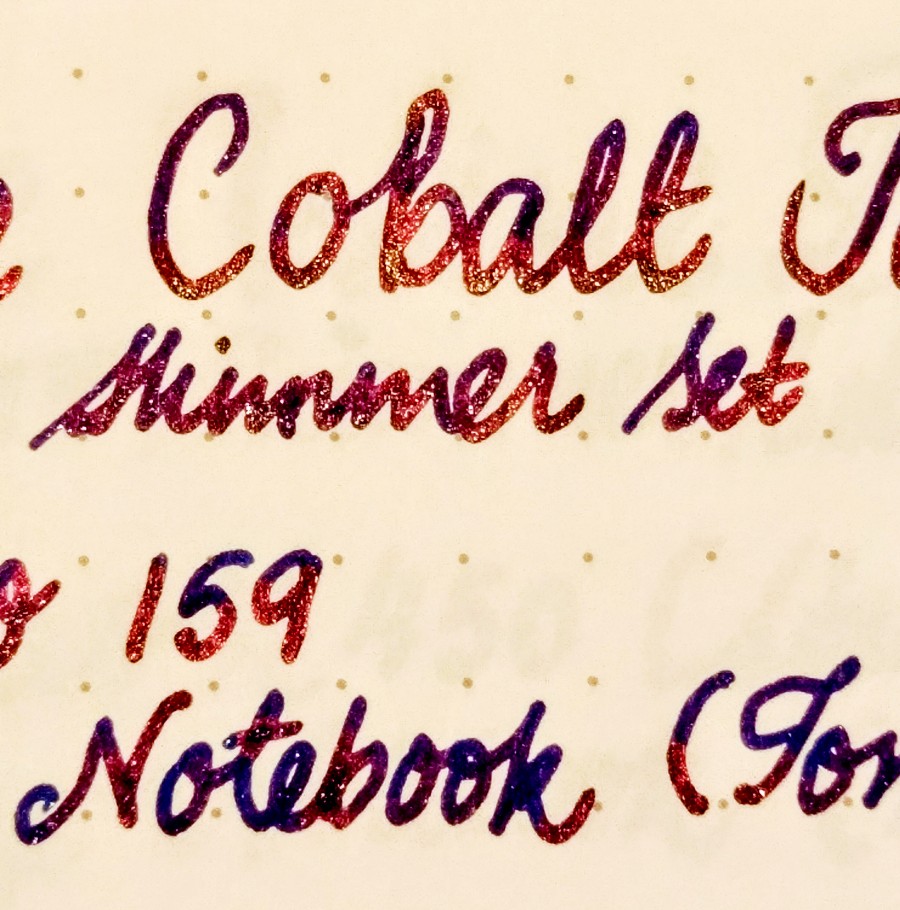 Cobalt
Shimmer Set
159
Notebook